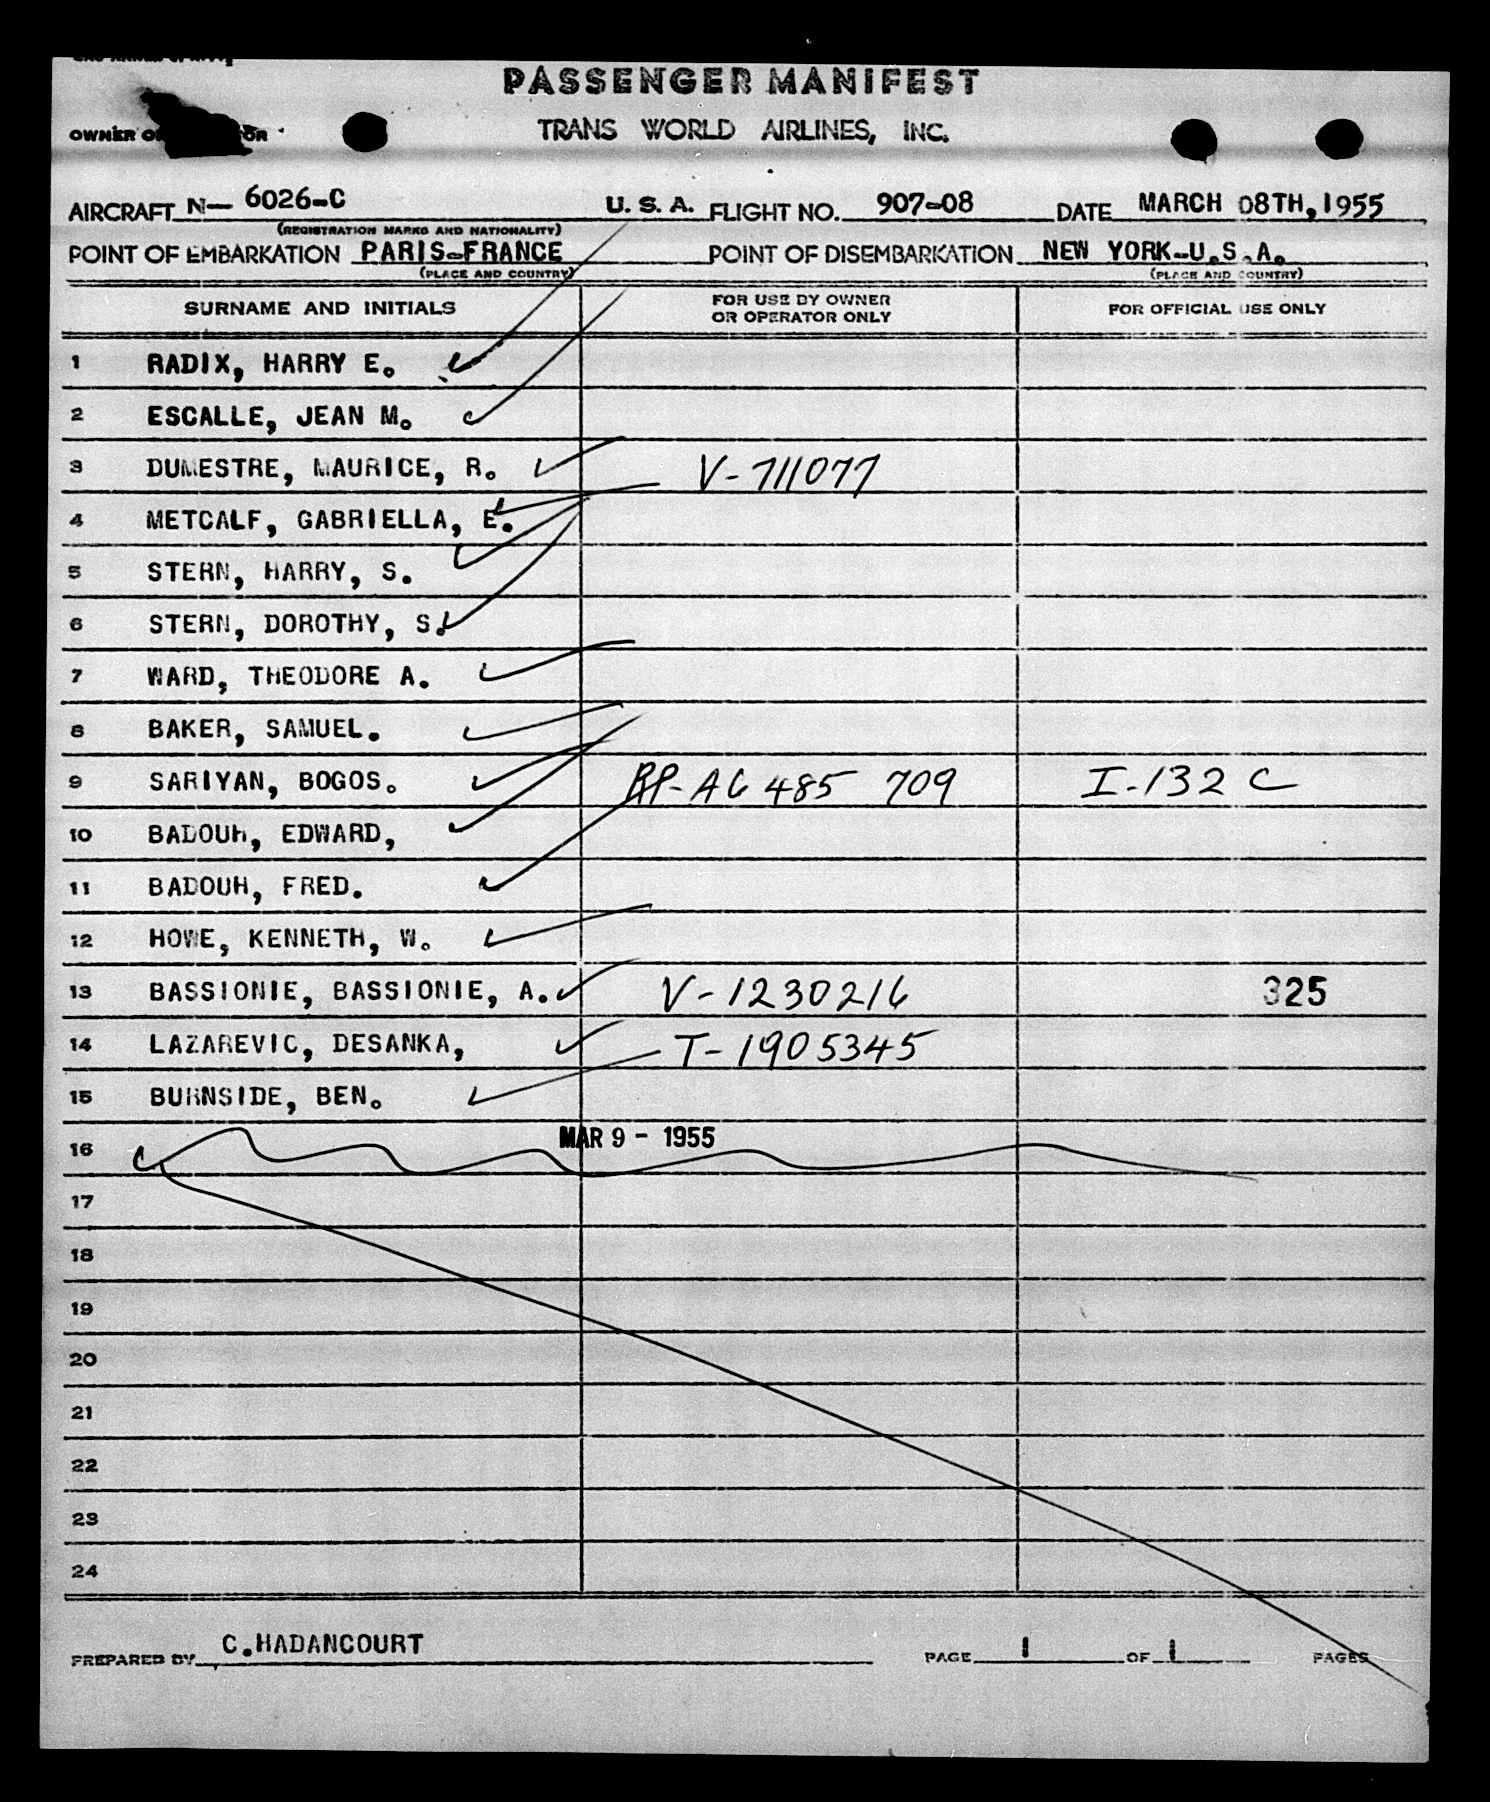 PASSENGER MANIFEST
OWNER OR
TRANS WORLD AIRLINES, INC.
AIRCRAFT N- 6026-C U. S. A. FLIGHT NO. 907-08 DATE MARCH 08TH, 1955
(REGISTRATION MARKS AND NATIONALITY)
POINT OF EMBARKATION PARIS-FRANCE POINT OF DISEMBARKATION NEW YORK-U.S.A.
(PLACE AND COUNTRY) (PLACE AND COUNTRY)
SURNAME AND INITIALS FOR USE BY OWNER OR OPERATOR ONLY FOR OFFICIAL USE ONLY
1 RADIX, HARRY E.
2 ESCALLE, JEAN M.
3 DUMESTRE, MAURICE, R. V-711077
4 METCALF, GABRIELLA, E.
5 STERN, HARRY, S.
6 STERN, DOROTHY, S.
7 WARD, THEODORE A.
8 BAKER, SAMUEL.
9 SARIYAN, BOGOS. RP-A6 485 709 I-132 C
10 BADOUH, EDWARD,
11 BADOUH, FRED.
12 HOWE, KENNETH, W.
13 BASSIONIE, BASSIONIE, A. V-1230216 325
14 LAZAREVIC, DESANKA, T-1905345
15 BURNSIDE, BEN.
16 MAR 9 - 1955
17
18
19
20
21
22
23
24
PREPARED BY C.HADANCOURT PAGE 1 OF 1 PAGES